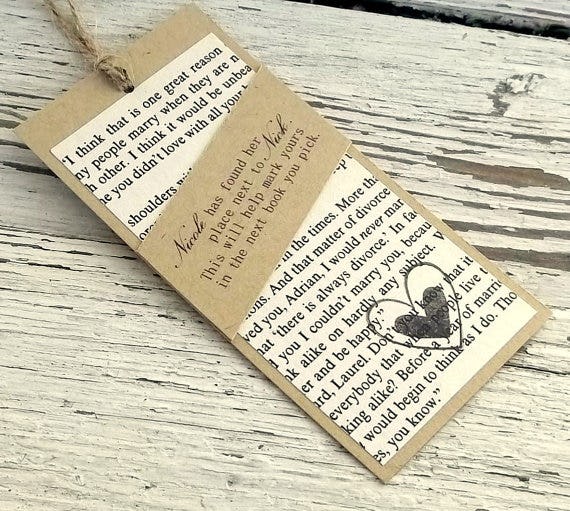 "I think that is one great reason
ny people marry when they are n
h other. I think it would be unbea
e you didn't love with all your
shoulders
Nicole has found her
place next to Nick.
This will help mark yours
in the next book you pick.
in the times. More tha
ous. And that matter of divorce
ed you, Adrian, I would never mar
hat there is always divorce. In fac
d you I couldn't marry you, becau
k alike on hardly any subject. W
er and be happy."
ard, Laurel. Don't you know that it
everybody that people live t
king alike? Before a year of marri
would begin to think as I do. Tho
es, you know."